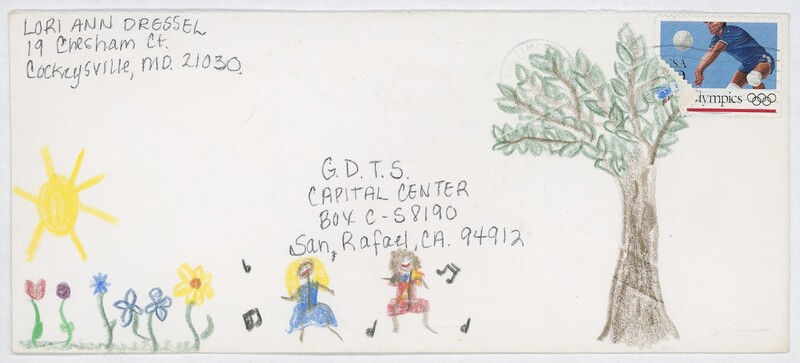 LORI ANN DRESSEL
19 Chesham Ct.
Cockeysville, MD. 21030
USA
Olympics
G.D.T.S.
CAPITAL CENTER
BOX C-S8190
San, Rafael, CA. 94912